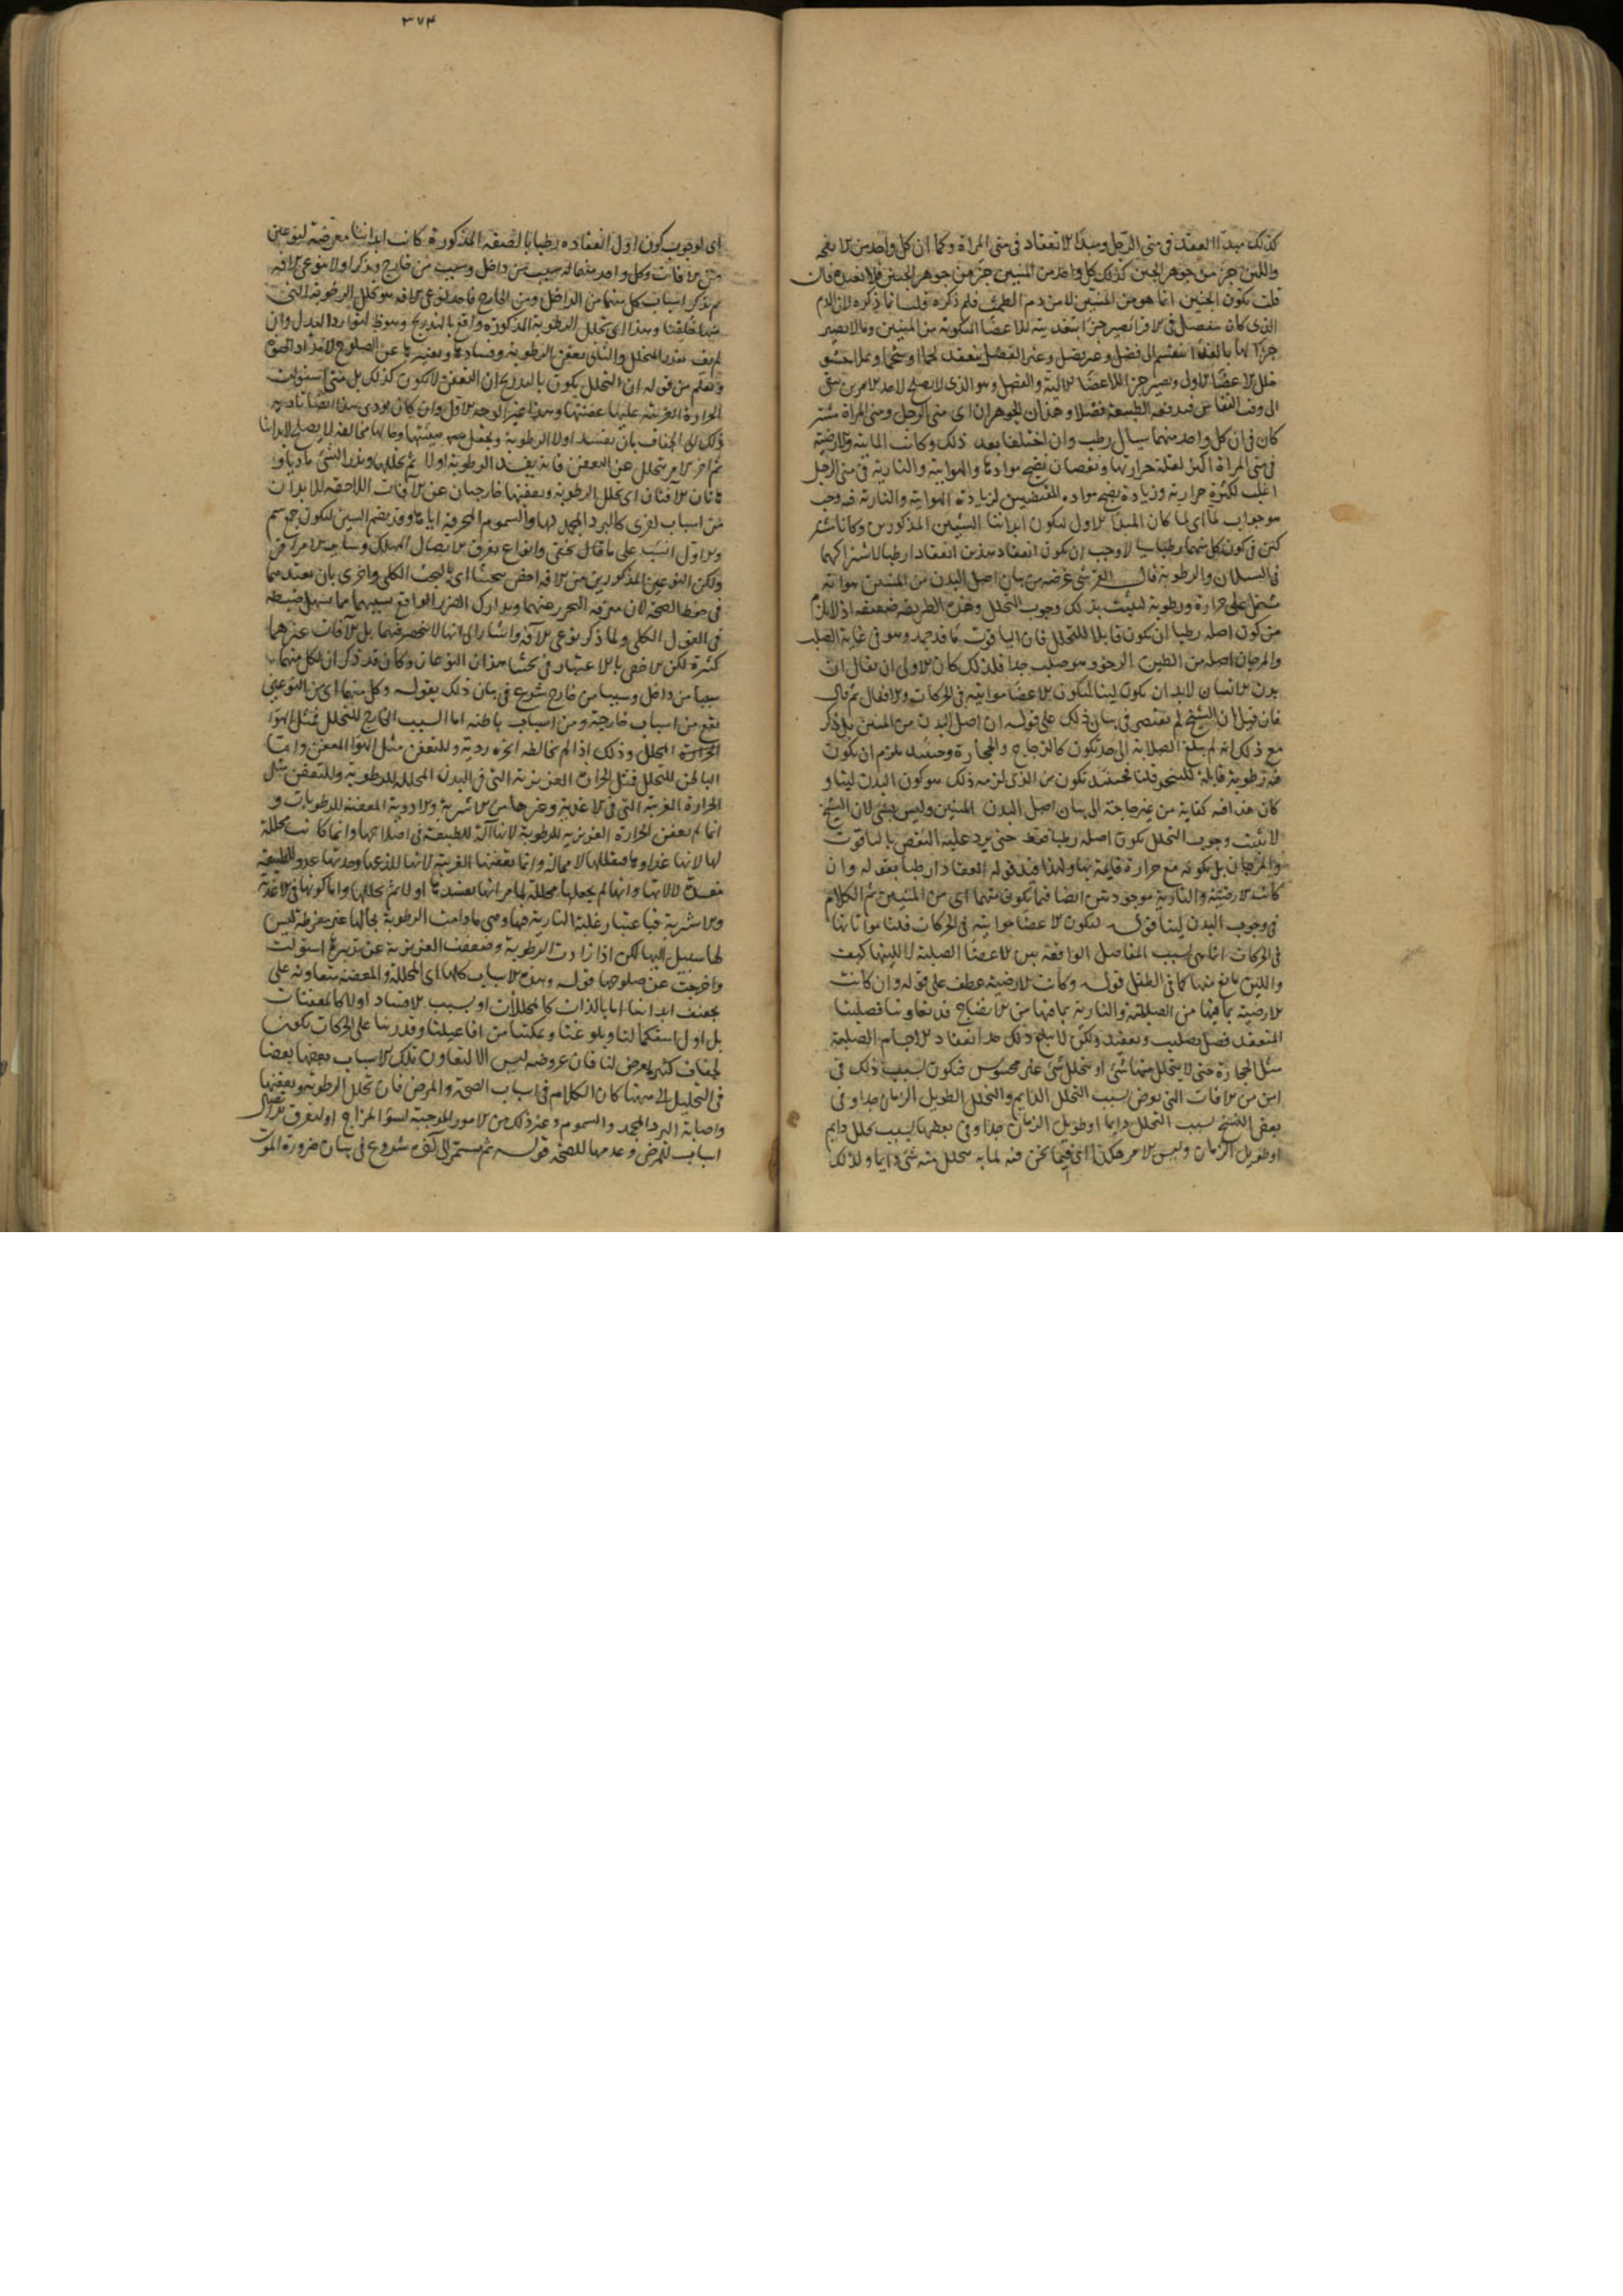 كذلك مبدأ العقد في مني الرجل ومبدأ الانعقاد في مني المرأة وكما ان كل واحد من الانفحة
واللبن جزء من جوهر الجبن كذلك كل واحد من المنيين جزء من جوهر الجنين فلا نعيده فان
قلت تكون الجنين انما هو من المنيين لا من دم الطمث فلم ذكره قلت انما ذكره لان الدم
الذي كان ينفصل في الاقراء يصير جزءا بتغذيته للاعضاء المتكونة من المنيين وما لا يصير
جزءا لها بالغذاء ينقسم الى فضل وغير فضل وغير الفضل ينعقد لحما او شحما ويملا حشو
خلل الاعضاء الاول ويصير جزءا للاعضاء الآلية والفضل وهو الذي لا يصلح لاحد الامرين يبقى
الى وقت النفاس فتدفعه الطبيعة فضلا وهذان الجوهران اي مني الرجل ومني المرأة مشتر
كان في ان كل واحد منهما سيال رطب وان اختلفا بعد ذلك وكانت المائية والارضية
في مني المرأة اكثر لقلة حرارتها ونقصان نضج موادها والهوائية والنارية في مني الرجل
اغلب لكثرة حرارته وزيادة نضج مواده المقتضيين لزيادة الهوائية والنارية فوجب
هو جواب لما اي لما كان المبدأ الاول لتكون ابداننا الشيئين المذكورين وكانا مشتر
كين في كون كل منهما رطبا سيالا وجب ان يكون انعقاد هذين انعقادا رطبا لاشتراكهما
في السيلان والرطوبة قال القرشي غرضه من بيان اصل البدن من المنيين هو انه
مشتمل على حرارة ورطوبة ليثبت بذلك وجوب التحلل وهذه الطريقة ضعيفة اذ لا يلزم
من كون اصله رطبا ان يكون قابلا للتحلل فان الياقوت ماء قد جمد وهو في غاية الصلب
والمرجان اصله من الطين الرخو وهو صلب جدا فلذلك كان الاولى ان يقال ان
بدن الانسان لابد ان يكون لينا لتكون الاعضاء مواتية في الحركات والافعال ثم قال
فان قيل ان الشيخ لم يقتصر في بيان ذلك على قوله ان اصل البدن من المنيين بل ذكر
مع ذلك انه لم يبلغ الصلابة الى حد يكون كالزجاج والحجارة وحينئذ يلزم ان يكون
فيه رطوبة قابلة للتحلل قلنا فحينئذ يكون من الذي لزمه ذلك هو كون البدن لينا و
كان هذا فيه كفاية من غير حاجة الى بيان اصل البدن المنيين وليس بشيء لان الشيخ
لا يثبت وجوب التحلل بكون اصله رطبا فقط حتى يرد عليه النقض بالياقوت
والمرجان بل بكونه مع حرارة قائمة بها ولهذا قيد قوله انعقادا رطبا بقوله وان
كانت الارضية والنارية موجودتين ايضا فيما تكون منهما اي من المنيين ثم الكلام
في وجوب البدن لينا قوله لتكون الاعضاء مواتية في الحركات قلنا مواتاتها
في الحركات انما هي بسبب المفاصل الواقعة بين الاعضاء الصلبة لا للينها كيف
واللين مانع منها كما في الطفل قوله وكانت الارضية عطف على قوله وان كانت
الارضية بما فيها من الصلابة والنارية بما فيها من الانضاج قد تعاونتا فصلبتا
المنعقد فضل تصليب وتعقيد ولكن لا يبلغ ذلك حد انعقاد الاجسام الصلبة
مثل الحجارة حتى لا يتحلل منها شيء او يتحلل شيء غير محسوس فتكون بسبب ذلك في
امن من الآفات التي تعرض بسبب التحلل الدائم والتحلل الطويل الزمان جدا وفي
بعض النسخ بسبب التحلل دائما او طويل الزمان جدا وفي بعضها بسبب تحلل دائم
او طويل الزمان وليس الامر هكذا اي فيما نحن فيه لما به يتحلل منه شيء دائما ولذلك
٣٧٤
اي لوجوب كون اول انعقاده رطبا بالصفة المذكورة كانت ابداننا معرضة لنوعين
من الآفات وكل واحد منهما له سبب من داخل وسبب من خارج ويذكر اولا نوعي الآفة
ثم يذكر اسباب كل منهما من الداخل ومن الخارج فاحد نوعي الآفة هو تحلل الرطوبة التي
منها خلقنا وهذا اي تحلل الرطوبة المذكورة واقع بالتدريج وهو لتوارد البدل وان
لم يف بقدر التحلل والثاني تعفن الرطوبة وفسادها وتغيرها عن الصلوح لامداد الحياة
وتعلم من قوله ان التحلل يكون بالتدريج ان التعفن لا يكون كذلك بل متى استولت
الحرارة الغريبة عليها عفنتها وهذا غير الوجه الاول وان كان يؤدي هذا ايضا تأديه
ذلك الى الجفاف بان يفسد اولا الرطوبة ويجعل هيئتها وحالها مخالفة لما يصلح لابداننا
ثم آخر الامر يتحلل عن التعفن فانه يفسد الرطوبة اولا ثم يحللها ويذر الشيء ماديا و
هاتان الآفتان اي تحلل الرطوبة وتعفنها خارجتان عن الآفات اللاحقة للابدان
من اسباب اخرى كالبرد المجمد لها والسموم المحرقة اياها وقد يضم السين لتكون جمع سم
والاول انسب على ما قال يحيى وانواع تفرق الاتصال المهلك وسائر الامراض
ولكن النوعين المذكورين من الآفة اخص ببحثنا اي بالبحث الكلي واحرى بان يعتد بهما
في حفظ الصحة لان معرفة التحرز عنهما وتدارك الضرر الواقع بسببهما مما يسهل ضبطه
في القول الكلي ولما ذكر نوعي الآفة واشار الى انها لا تنحصر فيهما بل الآفات غيرهما
كثيرة لكن الاخص بالاعتبار في بحثنا هذان النوعان وكان قد ذكر ان لكل منهما
سببا من داخل وسببا من خارج شرع في بيان ذلك بقوله وكل منهما اي من النوعين
يقع من اسباب خارجة ومن اسباب باطنة اما السبب الخارج للتحلل فمثل الهواء
المحلل وذلك اذا لم يخالطه ابخرة ردية وللتعفن مثل الهواء المعفن واما
الباطن للتحلل فمثل الحرارة الغريزية التي في البدن المحللة للرطوبة وللتعفن مثل
الحرارة الغريبة التي في الاغذية وغيرها من الاشربة والادوية المعفنة للرطوبات و
انما لم تعفن الحرارة الغريزية للرطوبة لانها آلة للطبيعة في اصلاحها وانما كانت محللة
لها لانها غذاؤها فتقللها لا محالة وانما تعفنها الغريبة لانها للذعها وحدتها عدو للطبيعة
مفسدة لآلاتها وانما لم يجعلها محللة لما مر انها تفسدها اولا ثم تحللها واما كونها في الاغذية
والاشربة فباعتبار غلبة النارية فيها وهي ما دامت الرطوبة بحالها غير مفرطة ليس
لها سبيل اليها لكن اذا زادت الرطوبة وضعفت الغريزية عن تدبيرها استولت
واخرجت عن صلوحها قوله وهذه الاسباب كلها اي المحللة والمعفنة متعاونة على
تجفيف ابداننا اما بالذات كالمحللات او بسبب الافساد اولا كالمعفنات
بل اول استكمالنا وبلوغنا وتمكننا من افاعيلنا وقدرتنا على الحركات يكون
بجفاف كثير يعرض لنا فان عروضه ليس الا لتعاون تلك الاسباب بعضها بعضا
في التحليل الى ههنا كان الكلام في اسباب الصحة والمرض فان تحلل الرطوبة وتعفنها
واصابة البرد المجمد والسموم وغير ذلك من الامور الموجبة لسوء المزاج او لتفرق الاتصال
اسباب للمرض وعدمها للصحة قوله ثم يستمر الى آخره شروع في بيان ضرورة الموت